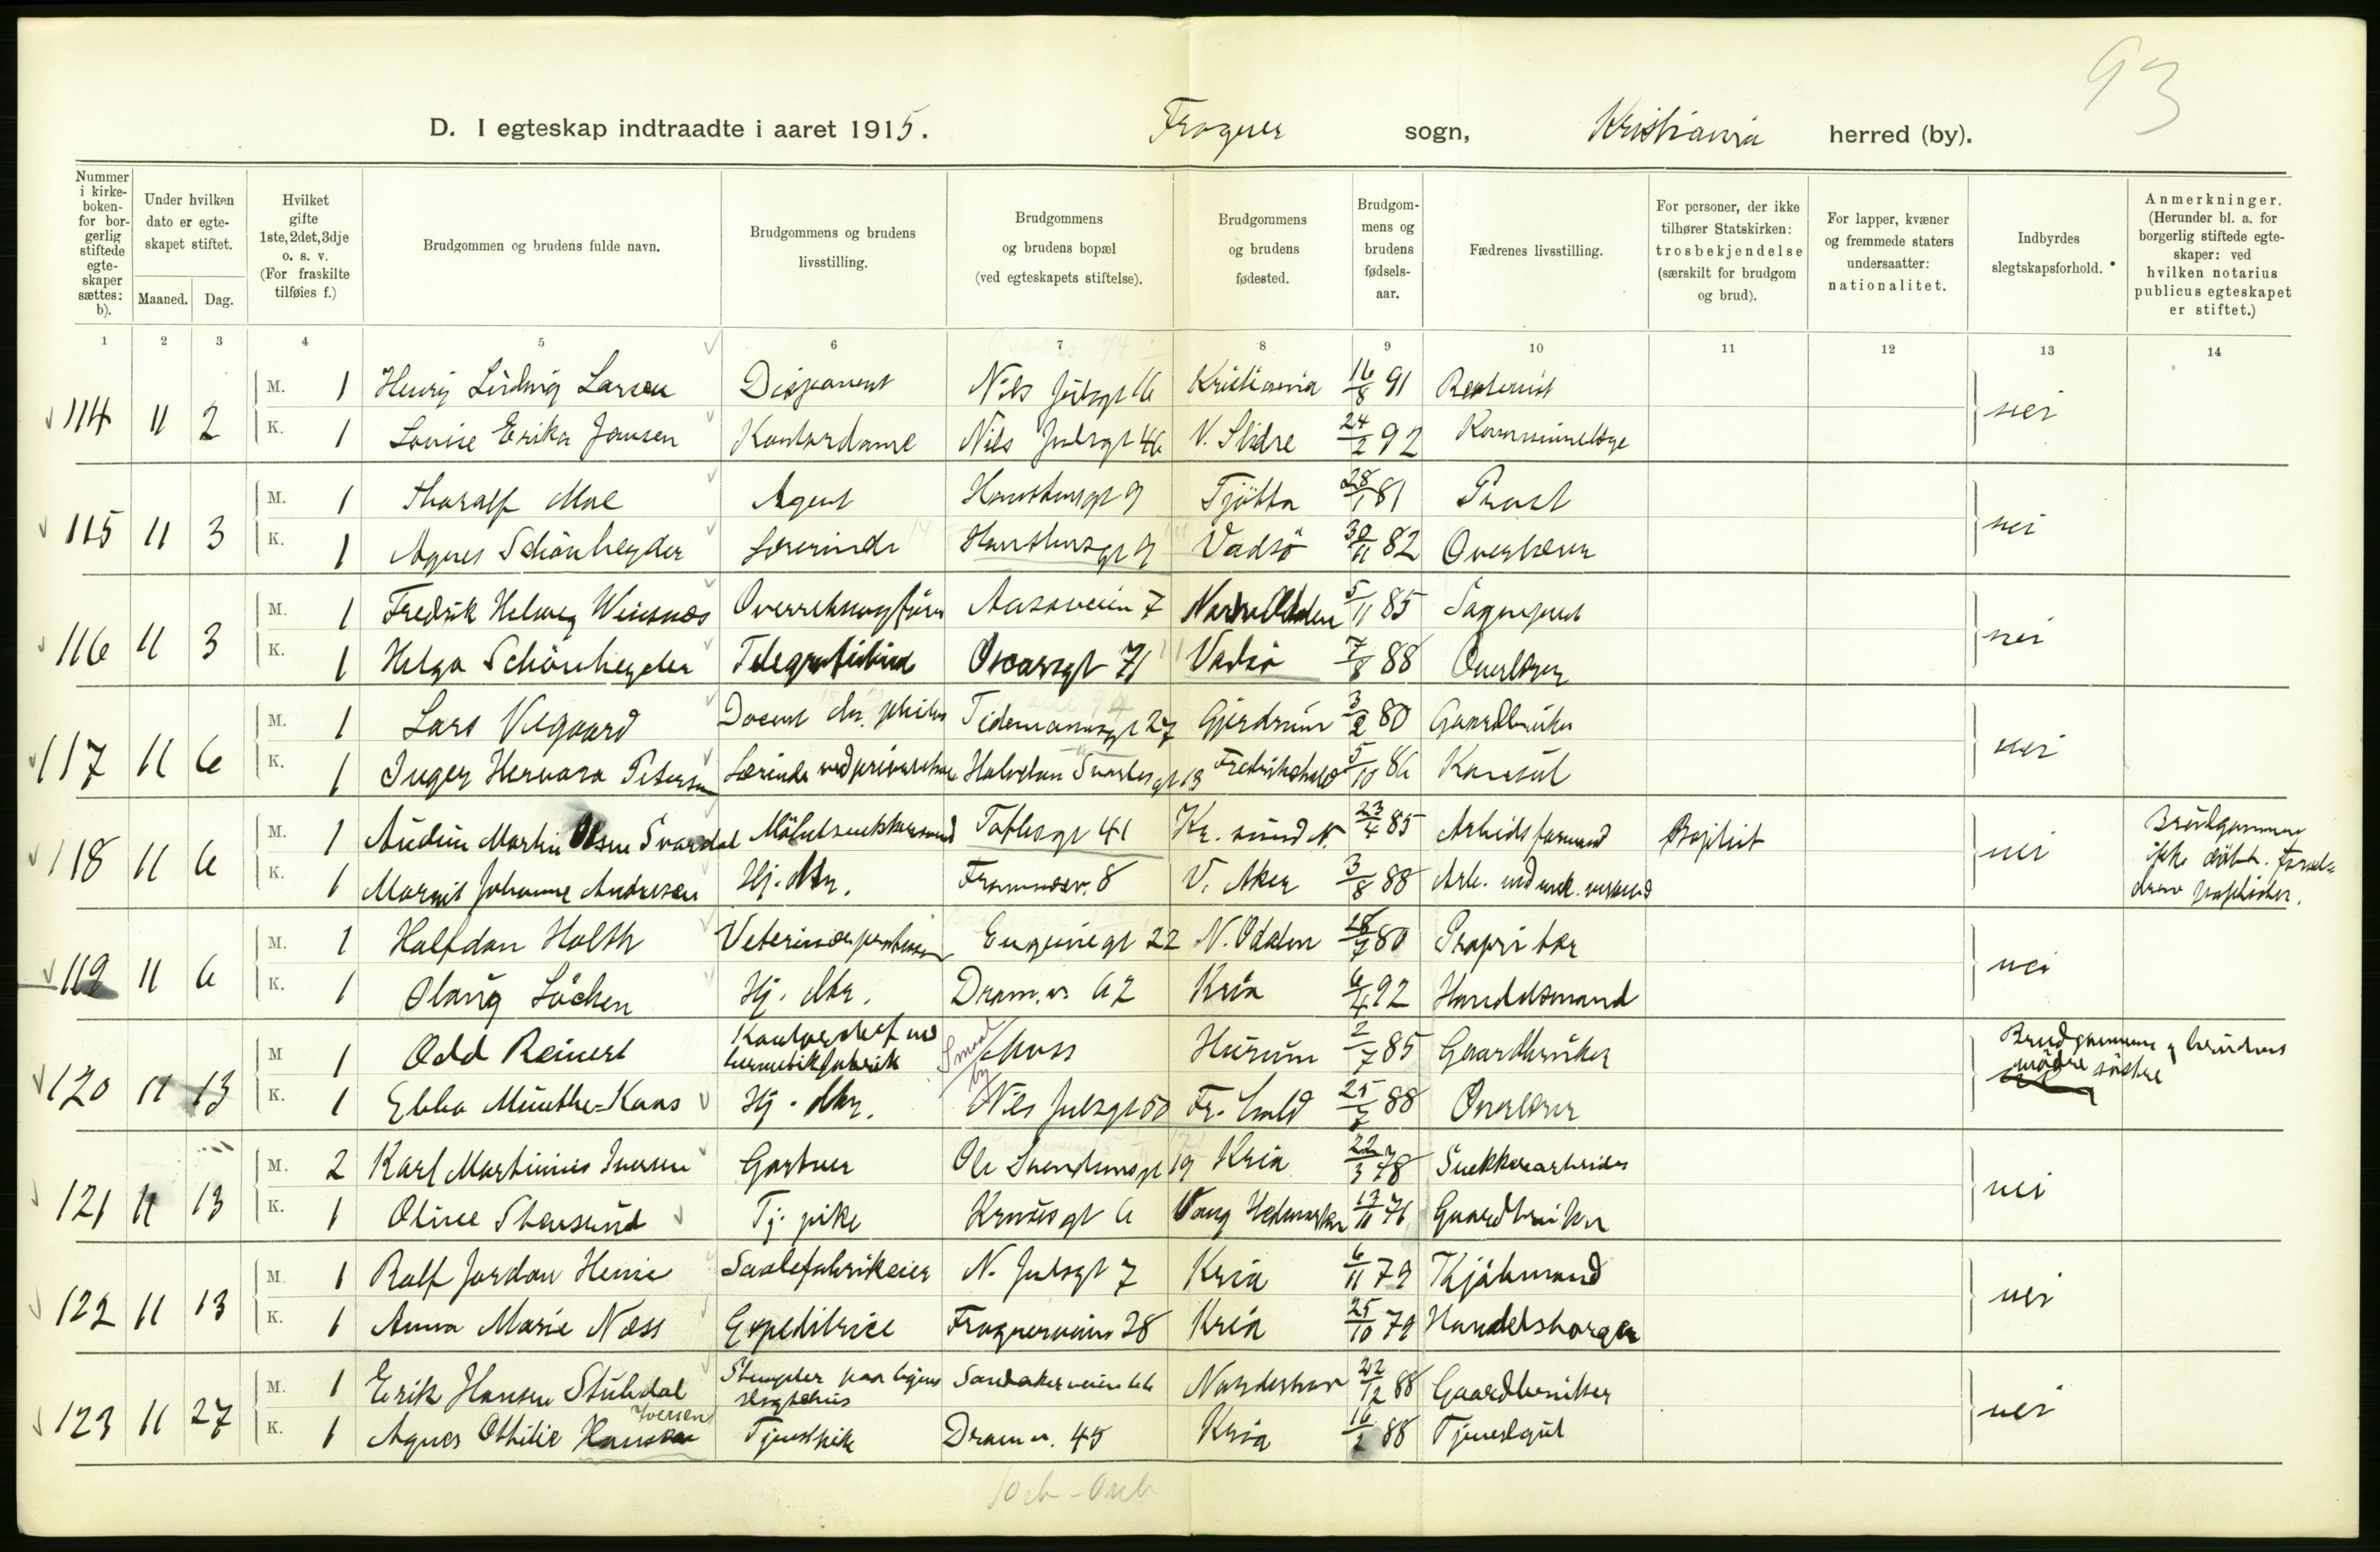 93
D. I egteskap indtraadte i aaret 1915. Frogner sogn, Kristiania herred (by).
Nummer i kirke-boken- for bor-gerlig stiftede egte-skaper sættes: b).
Under hvilken dato er egte-skapet stiftet.
Maaned. Dag.
Hvilket gifte 1ste, 2det, 3dje o. s. v. (For fraskilte tilføies f.)
Brudgommen og brudens fulde navn.
Brudgommens og brudens livsstilling.
Brudgommens og brudens bopæl (ved egteskapets stiftelse).
Brudgommens og brudens fødested.
Brudgom-mens og brudens fødsels-aar.
Fædrenes livsstilling.
For personer, der ikke tilhører Statskirken: trosbekjendelse (særskilt for brudgom og brud).
For lapper, kvæner og fremmede staters undersaatter: nationalitet.
Indbyrdes slegtskapsforhold.
Anmerkninger. (Herunder bl. a. for borgerlig stiftede egte-skaper: ved hvilken notarius publicus egteskapet er stiftet.)
1 2 3 4 5 6 7 8 9 10 11 12 13 14
114 11 2 M. 1 Henry Ludvig Larsen Disponent Nils Julsgt 16 Kristiania 16/8 91 nei
K. 1 Louise Erika Jansen Kontordame Nils Julsgt 46 V. Slidre 24/2 92
115 11 3 M. 1 Tharalf Moe Agent 9 Tjötta 28/1 81 Prost nei
K. 1 Agnes Schönheyder Lærerinde 9 Vadsö 30/11 82 Overlærer
116 11 3 M. 1 Fredrik Helweg Wiesnæs Aasaveien 7 5/11 85 Sogneprest nei
K. 1 Helga Schönheyder Telegrafistinde Oscarsgt 71 Vadsö 7/8 88 Overlærer
117 11 6 M. 1 Lars Vegaard Docent dr. philos Tidemansgt 27 Gjerdrum 3/2 80 Gaardbruker nei
K. 1 Inger Hervara Petersen Halvdan Svartesgt 13 Fredrikshald 5/10 86 Konsul
118 11 6 M. 1 Audun Martin Olsen Svardal Möbelsnekkersvend Toftesgt 41 Kr. sund N. 23/4 85 Arbeidsformand Baptist nei Brudgommen ikke döbt. Foræl-drene baptister.
K. 1 Margit Johanne Andresen Hj. Mor. Framnesv. 8 V. Aker 3/8 88 Arb. ved mek. verksted
119 11 6 M. 1 Halfdan Holth Eugeniegt 22 N. Odalen 28/7 80 Proprietær nei
K. 1 Olaug Löchen Hj. Mor. Dram. v. 62 Kria 6/4 92 Handelsmand
120 11 13 M 1 Odd Reinert Kontorchef ved hermetikfabrik Moss Hurum 2/7 85 Gaardbruker Brudgommens og brudens mödre söstre
K. 1 Ebba Münthe-Kaas Hj. Mor. Nils Julsgt 50 Fr. hald 25/7 88 Overlærer
121 11 13 M. 2 Karl Martinius Iversen Gartner 19 Kria 22/3 78 Snekkerarbeider nei
K. 1 Oline Stensund Tj. pike Krusesgt 6 Vang Hedmarken 13/11 76 Gaardbruker
122 11 13 M. 1 Rolf Jordan Henie Saalefabrikeier N. Julsgt 7 Kria 6/11 79 Kjöbmand nei
K. 1 Anna Marie Næss Expeditrice Frognerveien 28 Kria 25/10 79 Handelsborger
123 11 27 M. 1 Erik Hansen Stubdal Stempler paa byens slagtehus Sandakerveien Nordrehov 22/12 88 Gaardbruker nei
K. 1 Agnes Othilie Hansen Iversen Tjenestpike Dram. v. 45 Kria 16/2 88 Tjenestgut